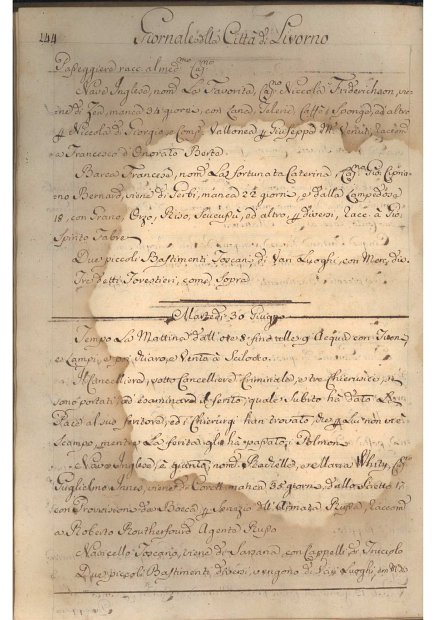 244 Giornale della Città di Livorno
Passeggiere racc. al med.mo Cap.no
Nave Inglese, nom.a La Favorita, Cap. Niccola Friderichson, vie=
ne di Zea, manca 34 giorni, con Lana, Telerie, Caffè, Sponge, ed altro
p Niccola di Giorgio, e Comp. Vallonea p Giuseppe M.a Venuti, raccom.
a Francesco d'Onorato Berta.
Barca Francese, nom.a La fortunata Caterina, Cap. Gio: Cipria=
no Bernard, viene di Gerbi, manca 24 giorni, e dalla Lampedosa
18, con Grano, Orzo, Riso, ed altro, p diversi, racc. a Gio:
Spirito Fabre
Due piccoli Bastimenti Toscani, di Vari Luoghi, con Merci, die=
Tre detti Forestieri, come sopra
Martedì 30 Giugno
Tempo La Mattina dall'ore 8 fin alle 9 Acqua con Tuoni,
e Lampi, e poi chiaro, e Vento a Scilocco.
Il Cancelliere, sotto Cancelliere Criminale, e tre Chierusici, si
sono portati ad esaminare il ferito, quale subito ha dato La
Pace al suo feritore, ed i Chierurgi han trovato, che p lui non vi è
Scampo, mentre La ferita gl'ha passato i Polmoni
Nave Inglese, e quinta, nom.a e Maria Whity, Cap.
Guglielmo Innes, viene di manca 35 giorni, e dallo Stretto 17.
con Provvisione da Bocca p servizio dell'Armata Russa, raccom.
a Roberto Routherfourd Agente Russo
Navicello Toscano, viene di Sarzana, con Cappelli di Truciolo
Due piccoli Bastimenti vengono di Varj Luoghi, con